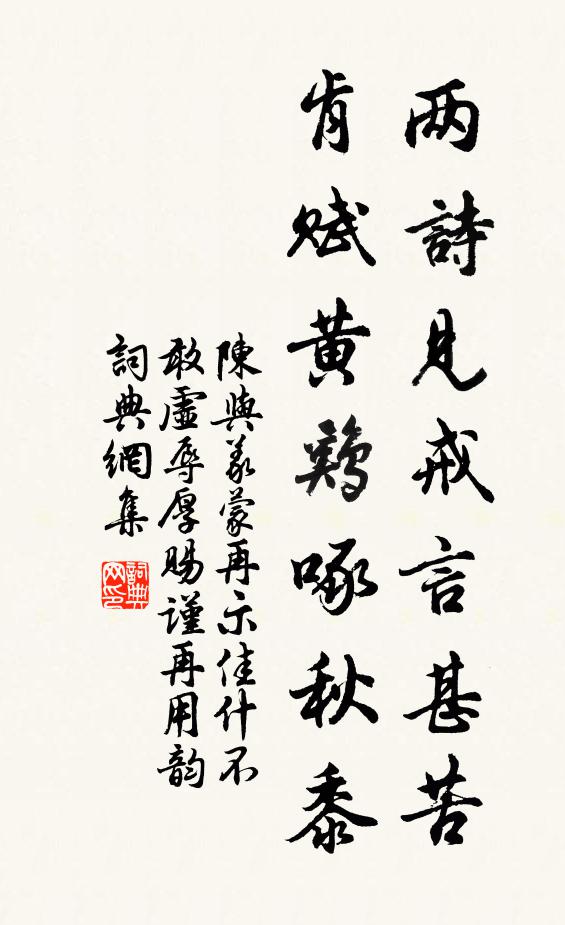 两詩見戒言甚苦
肯赋黄鷄啄秋黍
陳與義蒙再示佳什不
敢虛辱厚賜謹再用韵
詞典網集
詞典
网印